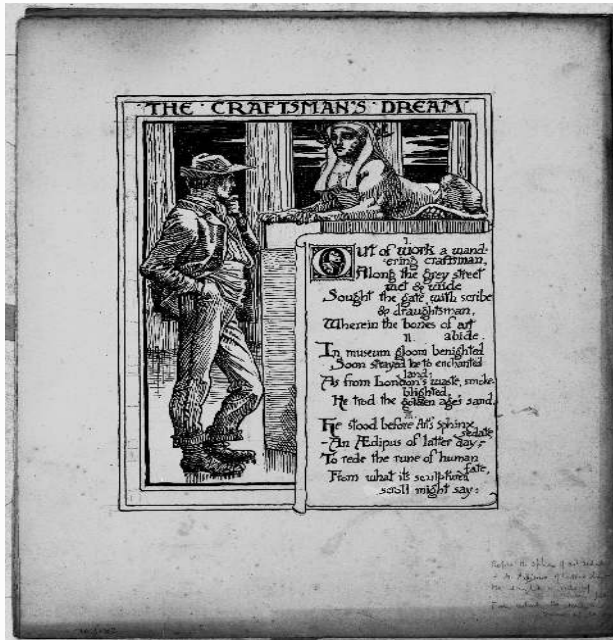 THE CRAFTSMAN'S DREAM
I.
Out of work a wand-
ering craftsman,
Along the grey street
wet & wide
Sought the gate, with scribe
& draughtsman,
Wherein the bones of art
abide.
II.
In museum gloom benighted
Soon strayed he to enchanted
land:
As from London's waste, smoke-
blighted,
He trod the golden age's sand.
III.
He stood before Art's sphinx
sedate,
-An Ædipus of latter day,-
To rede the rune of human
fate,
From what its sculptured
scroll might say: